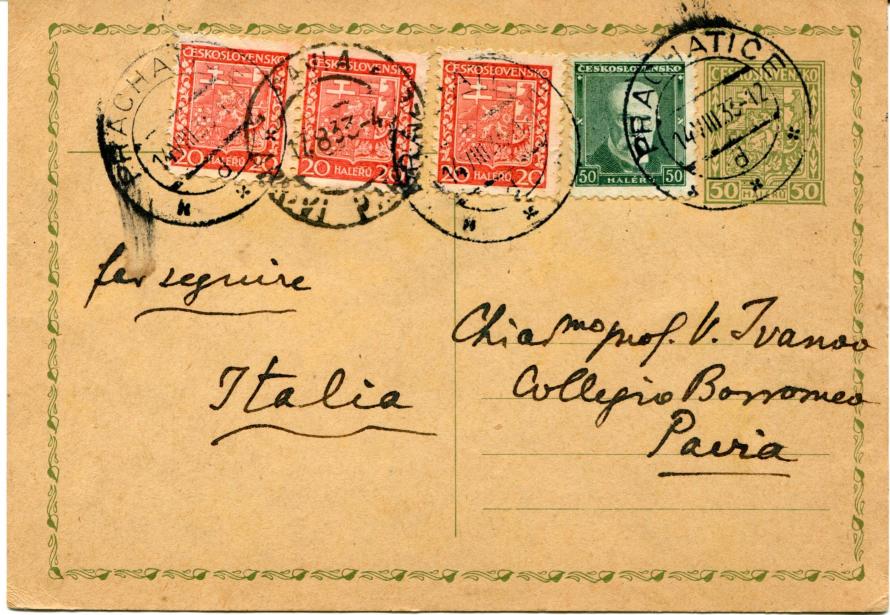 ČESKOSLOVENSKO
20 HALÉŘŮ 20
ČESKOSLOVENSKO
20 HALÉŘŮ 20
ČESKOSLOVENSKO
20 HALÉŘŮ 20
ČESKOSLOVENSKO
50 HALÉŘŮ 50
ČESKOSLOVENSKO
50 HALÉŘŮ 50
PRACHATICE
14 VIII 33-12
d
far seguire
Italia
Chiar.mo prof. V. Ivanov
Collegio Borromeo
Pavia